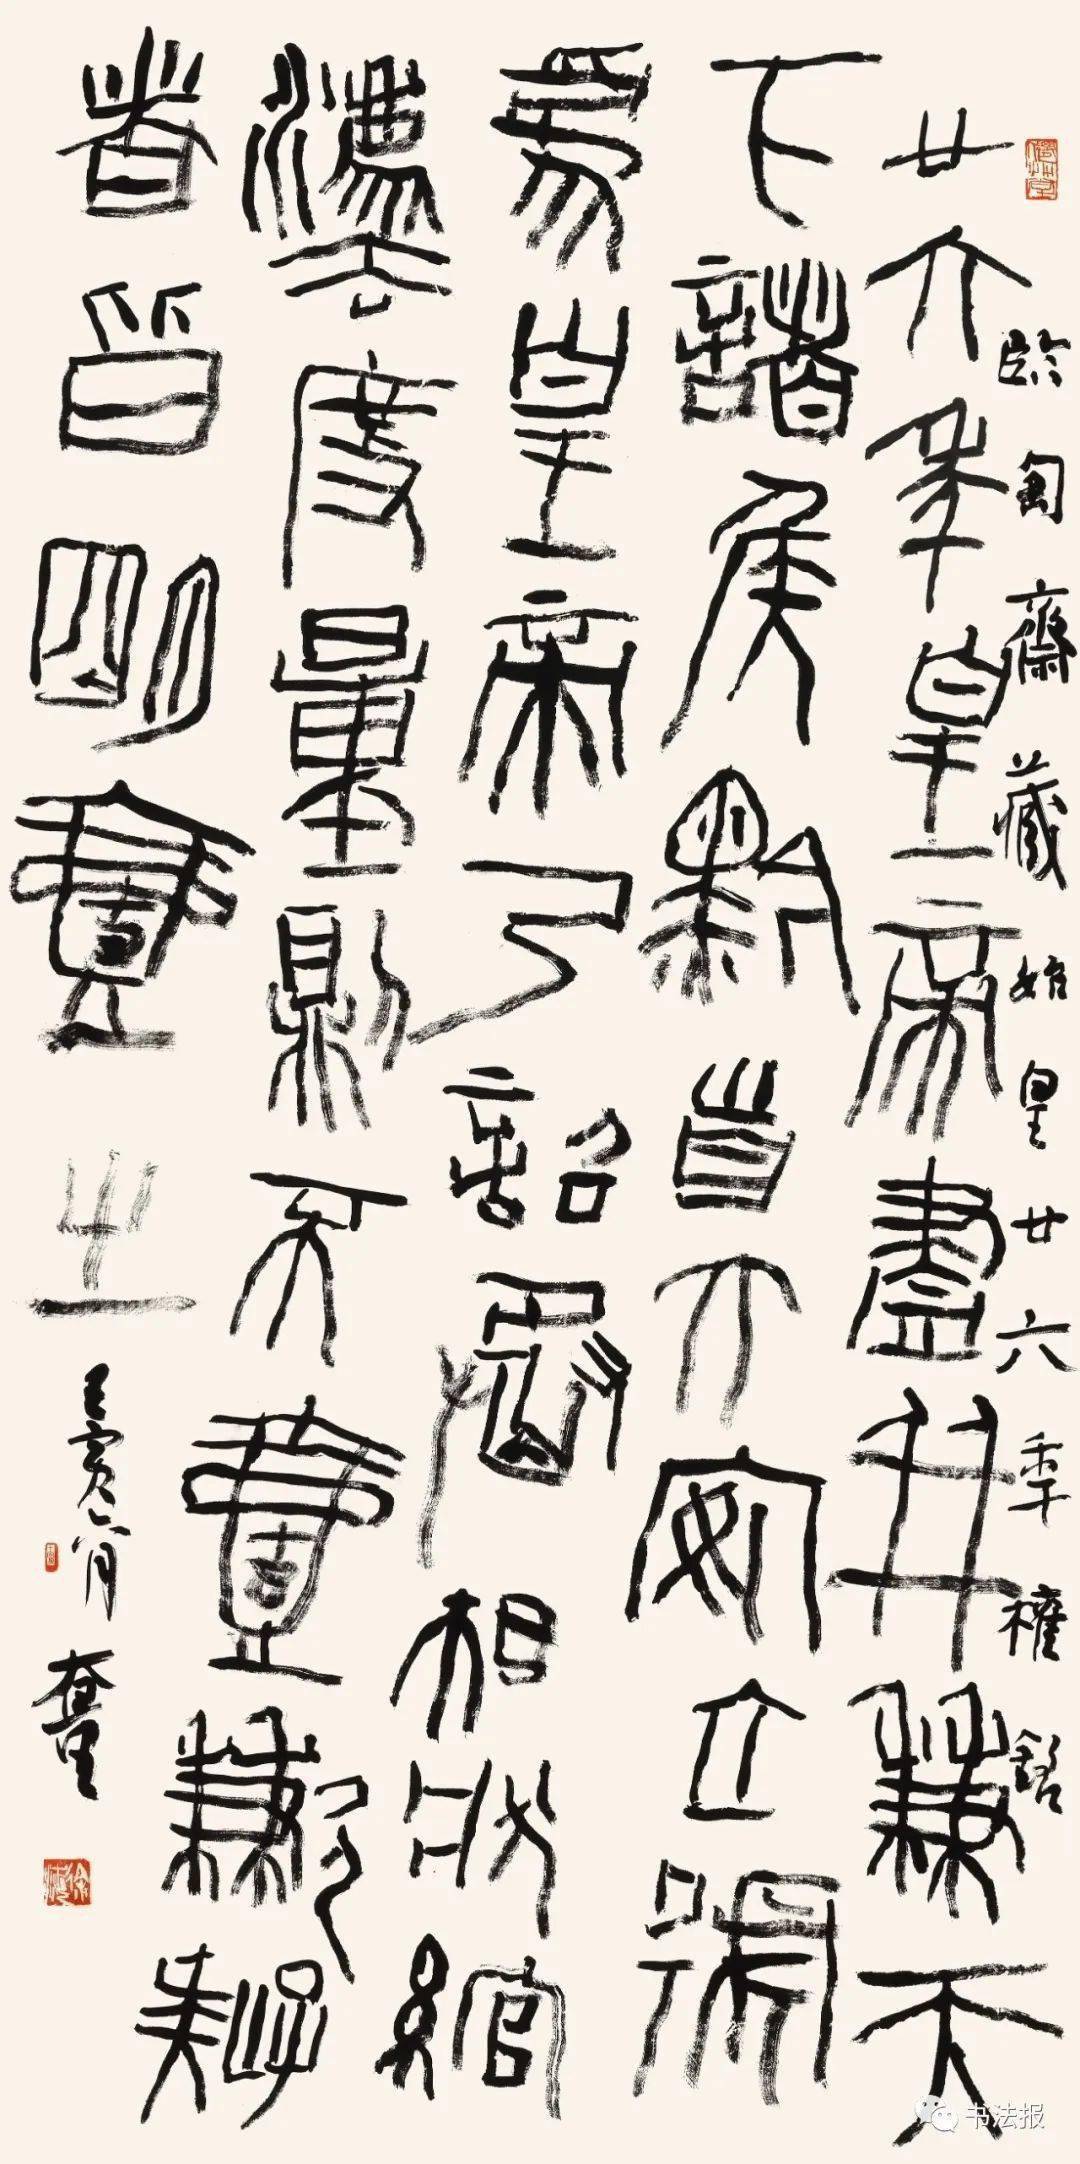 臨匋齋藏始皇廿六秊權銘
廿六年皇帝盡并兼天
下諸侯黔首大安立號
爲皇帝乃詔丞相狀綰
灋度量則不壹歉疑
者皆明壹之
壬寅六月
书法报